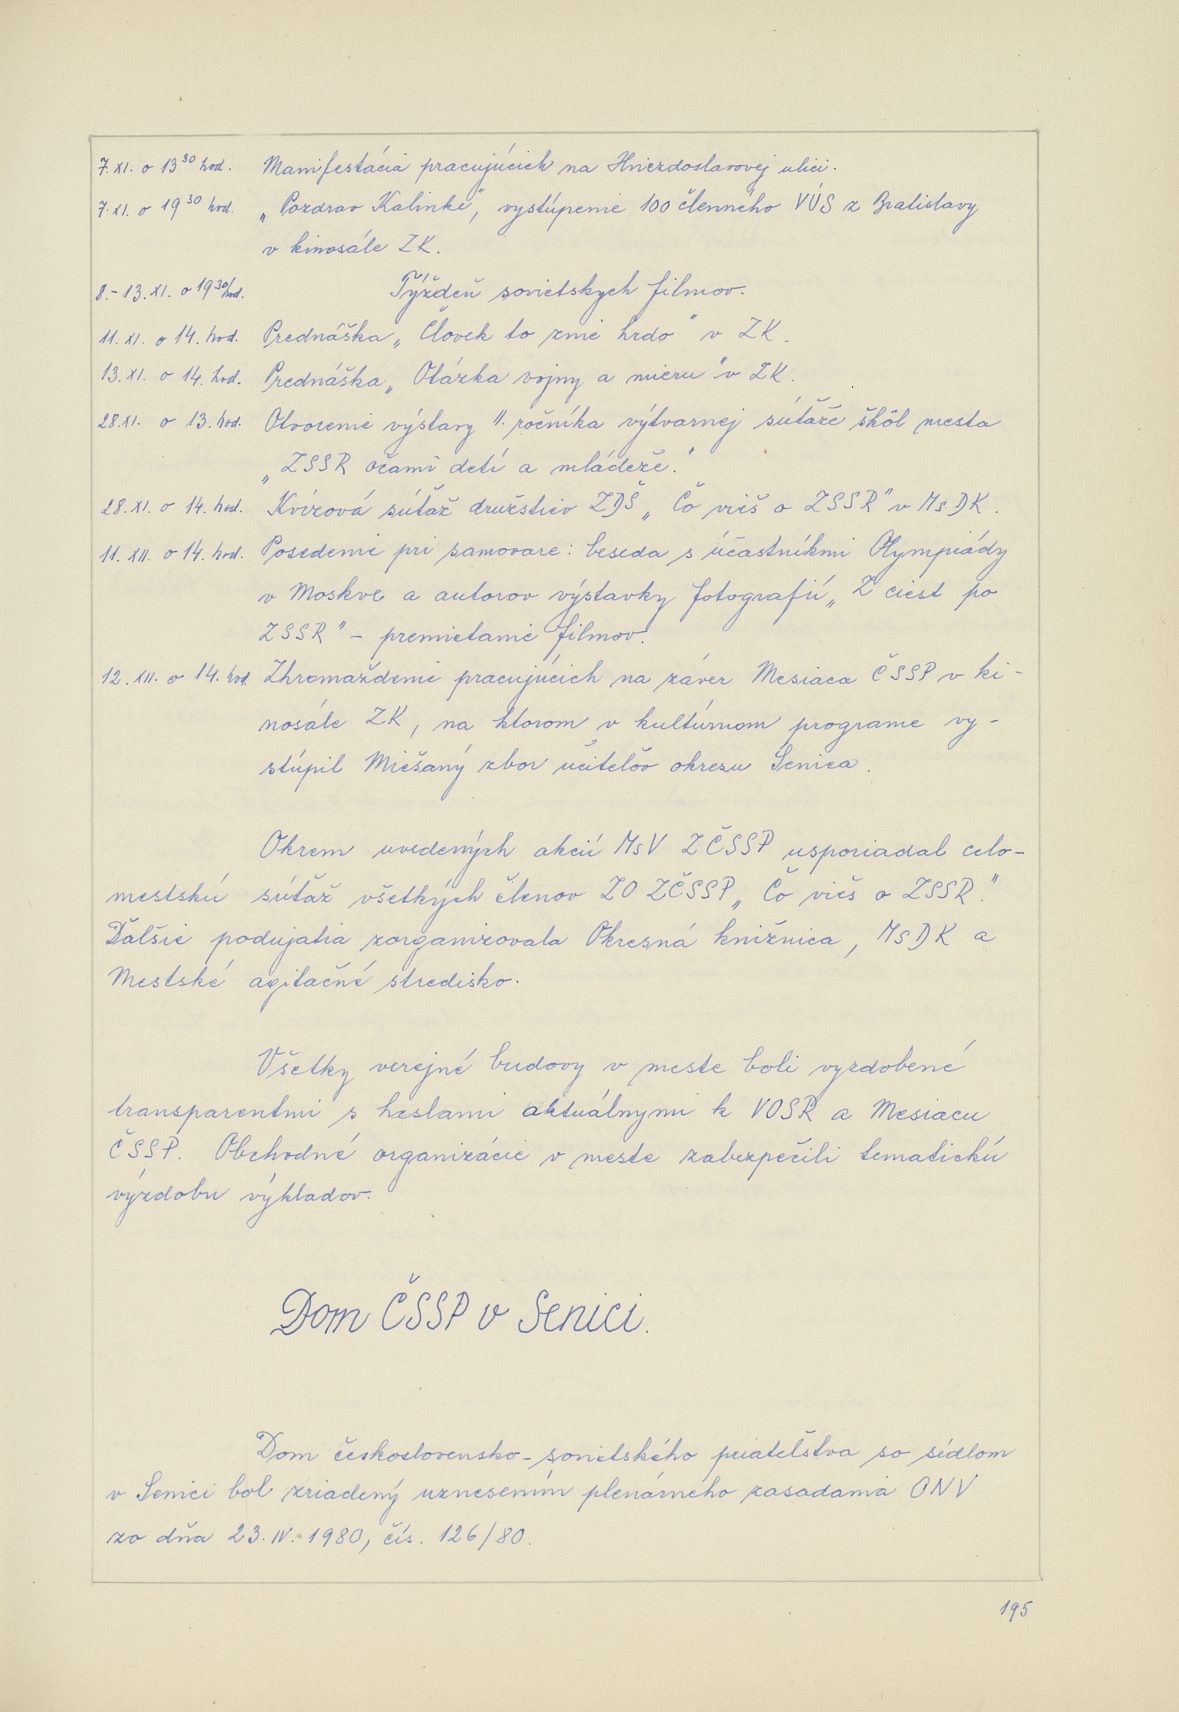 7. XI. o 13³⁰ hod. Manifestácia pracujúcich na Hviezdoslavovej ulici.
7. XI. o 19³⁰ hod. „Pozdrav Kalinke", vystúpenie 100 členného VÚS z Bratislavy
v kinosále ZK.
8.-13. XI. o 19³⁰ hod. Týždeň sovietskych filmov.
11. XI. o 14. hod. Prednáška „Človek to znie hrdo" v ZK.
13. XI. o 14. hod. Prednáška „Otázka vojny a mieru" v ZK.
28. XI. o 13. hod. Otvorenie výstavy II. ročníka výtvarnej súťaže škôl mesta
„ZSSR očami detí a mládeže."
28. XI. o 14. hod. Kvízová súťaž družstiev ZDŠ „Čo vieš o ZSSR" v MsDK.
11. XII. o 14. hod. Posedenie pri samovare: beseda s účastníkmi Olympiády
v Moskve a autorov výstavky fotografií „Z ciest po
ZSSR" – premietanie filmov.
12. XII. o 14. hod. Zhromaždenie pracujúcich na záver Mesiaca ČSSP v ki-
nosále ZK, na ktorom v kultúrnom programe vy-
stúpil Miešaný zbor učiteľov okresu Senica.
Okrem uvedených akcií MsV ZČSSP usporiadal celo-
mestskú súťaž všetkých členov ZO ZČSSP „Čo vieš o ZSSR."
Ďalšie podujatia zorganizovala Okresná knižnica, MsDK a
Mestské agitačné stredisko.
Všetky verejné budovy v meste boli vyzdobené
transparentmi s heslami aktuálnymi k VOSR a Mesiacu
ČSSP. Obchodné organizácie v meste zabezpečili tematickú
výzdobu výkladov.
Dom ČSSP v Senici.
Dom československo-sovietského priateľstva so sídlom
v Senici bol zriadený uznesením plenárneho zasadania ONV
zo dňa 23. IV. 1980, čís. 126/80.
195